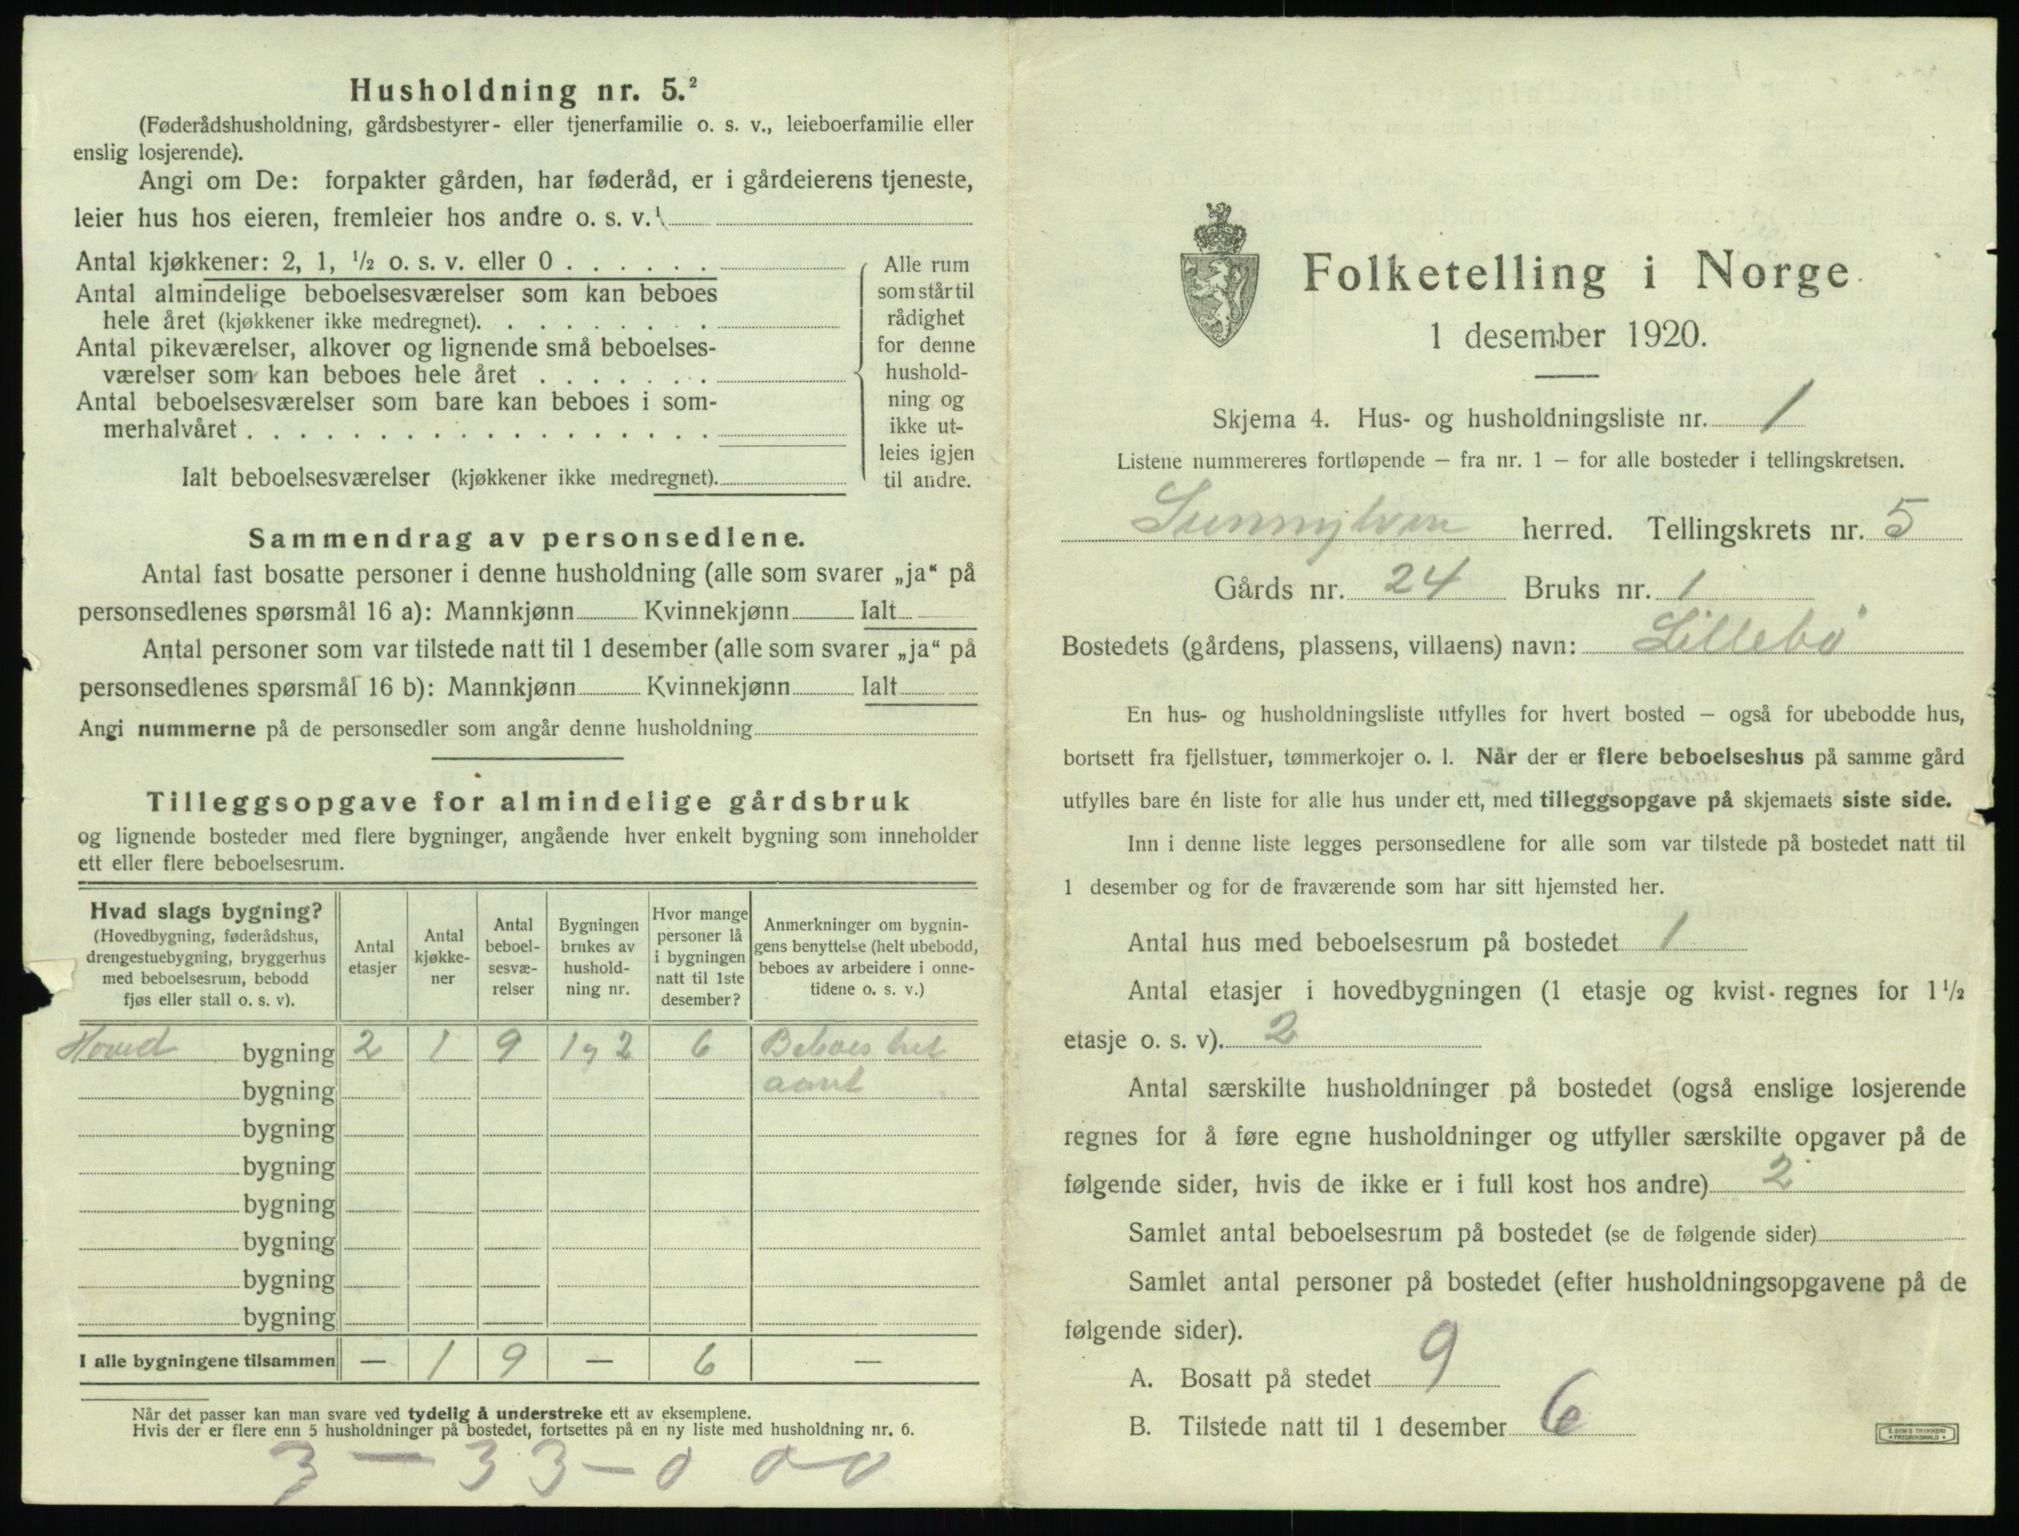 Husholdning nr. 5.²
(Føderådshusholdning, gårdsbestyrer- eller tjenerfamilie o. s. v., leieboerfamilie eller
enslig losjerende).
Angi om De: forpakter gården, har føderåd, er i gårdeierens tjeneste,
leier hus hos eieren, fremleier hos andre o. s. v.¹
Antal kjøkkener: 2, 1, ½ o. s. v. eller 0
Antal almindelige beboelsesværelser som kan beboes
hele året (kjøkkener ikke medregnet).
Antal pikeværelser, alkover og lignende små beboelses-
værelser som kan beboes hele året
Antal beboelsesværelser som bare kan beboes i som-
merhalvåret
Ialt beboelsesværelser (kjøkkener ikke medregnet).
Alle rum
som står til
rådighet
for denne
hushold-
ning og
ikke ut-
leies igjen
til andre.
Sammendrag av personsedlene.
Antal fast bosatte personer i denne husholdning (alle som svarer „ja“ på
personsedlenes spørsmål 16 a): Mannkjønn Kvinnekjønn Ialt
Antal personer som var tilstede natt til 1 desember (alle som svarer „ja“ på
personsedlenes spørsmål 16 b): Mannkjønn Kvinnekjønn Ialt
Angi nummerne på de personsedler som angår denne husholdning
Tilleggsopgave for almindelige gårdsbruk
og lignende bosteder med flere bygninger, angående hver enkelt bygning som inneholder
ett eller flere beboelsesrum.
Hvad slags bygning?
(Hovedbygning, føderådshus,
drengestuebygning, bryggerhus
med beboelsesrum, bebodd
fjøs eller stall o. s. v).
Antal
etasjer
Antal
kjøkke-
ner
Antal
beboel-
sesvæ-
relser
Bygningen
brukes av
hushold-
ning nr.
Hvor mange
personer lå
i bygningen
natt til 1ste
desember?
Anmerkninger om bygnin-
gens benyttelse (helt ubebodd,
beboes av arbeidere i onne-
tidene o. s. v.)
Hoved bygning 2 1 9 1 og 2 6 Beboes hel
bygning aaret
bygning
bygning
bygning
bygning
bygning
bygning
I alle bygningene tilsammen — 1 9 — 6 —
Når det passer kan man svare ved tydelig å understreke ett av eksemplene.
Hvis der er flere enn 5 husholdninger på bostedet, fortsettes på en ny liste med husholdning nr. 6.
3 — 33 — 0 0 — 0
Folketelling i Norge
1 desember 1920.
Skjema 4. Hus- og husholdningsliste nr. 1
Listene nummereres fortløpende — fra nr. 1 — for alle bosteder i tellingskretsen.
Sunnylven herred. Tellingskrets nr. 5
Gårds nr. 24 Bruks nr. 1
Bostedets (gårdens, plassens, villaens) navn: Lillebö
En hus- og husholdningsliste utfylles for hvert bosted — også for ubebodde hus,
bortsett fra fjellstuer, tømmerkojer o. l. Når der er flere beboelseshus på samme gård
utfylles bare én liste for alle hus under ett, med tilleggsopgave på skjemaets siste side.
Inn i denne liste legges personsedlene for alle som var tilstede på bostedet natt til
1 desember og for de fraværende som har sitt hjemsted her.
Antal hus med beboelsesrum på bostedet 1
Antal etasjer i hovedbygningen (1 etasje og kvist regnes for 1½
etasje o. s. v). 2
Antal særskilte husholdninger på bostedet (også enslige losjerende
regnes for å føre egne husholdninger og utfyller særskilte opgaver på de
følgende sider, hvis de ikke er i full kost hos andre) 2
Samlet antal beboelsesrum på bostedet (se de følgende sider)
Samlet antal personer på bostedet (efter husholdningsopgavene på de
følgende sider).
A. Bosatt på stedet 9
B. Tilstede natt til 1 desember 6